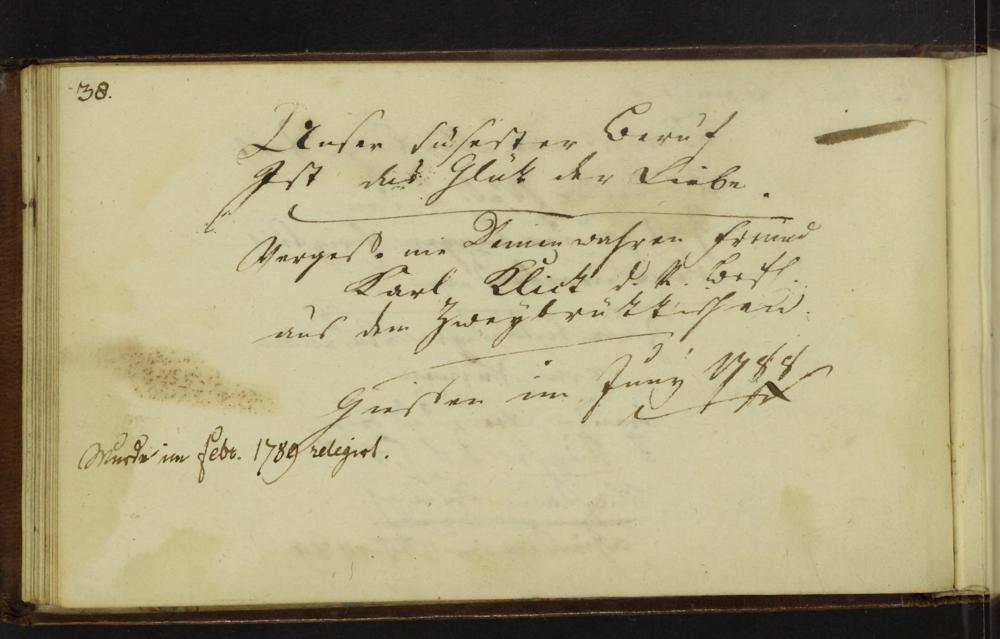 38.
Unser süsester Beruf
Ist das Glük der Liebe.
Vergeß. nie Deinen wahren Freund
Karl Klick d. R. Befl.
aus dem Zweybrükkischen.
Giessen im Juny 1788
Wurde im Febr. 1789 relegirt.